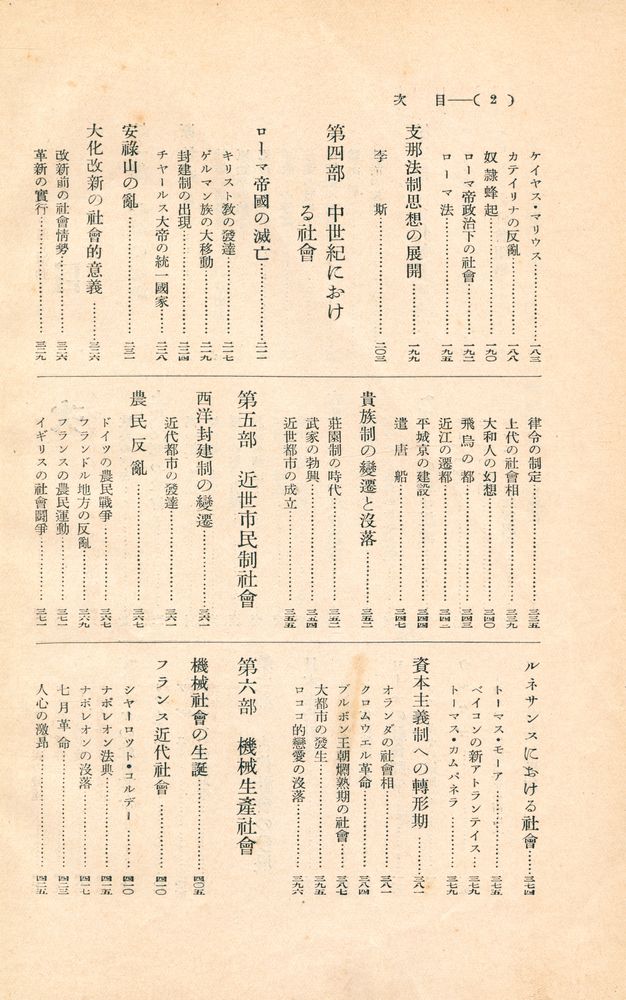 目次――( 2 )
ケイヤス・マリウス…………一八三
カテイリナの反亂…………一八八
奴隷蜂起…………一九〇
ローマ帝政治下の社會…………一九二
ローマ法…………一九五
支那法制思想の展開…………一九九
李斯…………二〇三
第四部 中世紀におけ
る社會
ローマ帝國の滅亡…………二一一
キリスト敎の發達…………二一七
ゲルマン族の大移動…………二一九
封建制の出現…………二二四
チャールス大帝の統一國家…………二二八
安祿山の亂…………二三一
大化改新の社會的意義…………三二六
改新前の社會情勢…………三二六
革新の實行…………三二九
律令の制定…………三三五
上代の社會相…………三三九
大和人の幻想…………三四〇
飛鳥の都…………三四二
近江の遷都…………三四三
平城京の建設…………三四四
遣唐船…………三四七
貴族制の變遷と沒落…………三五二
莊園制の時代…………三五二
武家の勃興…………三五四
近世都市の成立…………三五五
第五部 近世市民制社會
西洋封建制の變遷…………三六一
近代都市の發達…………三六一
農民反亂…………三六七
ドイツの農民戰爭…………三六七
フランドル地方の反亂…………三六九
フランスの農民運動…………三七一
イギリスの社會鬪爭…………三七一
ルネサンスにおける社會…………三七四
トーマス・モーア…………三七五
ベイコンの新アトランテイス…………三七九
トーマス・カムパネラ…………三七九
資本主義制への轉形期…………三八一
オランダの社會相…………三八一
クロムウエル革命…………三八四
ブルボン王朝爛熟期の社會…………三八七
大都市の發生…………三九五
ロココ的戀愛の沒落…………三九六
第六部 機械生產社會
機械社會の生誕…………四〇五
フランス近代社會…………四一〇
シヤーロツト・コルデー…………四一〇
ナポレオン法典…………四一五
ナポレオンの沒落…………四一七
七月革命…………四二三
人心の激昻…………四二五